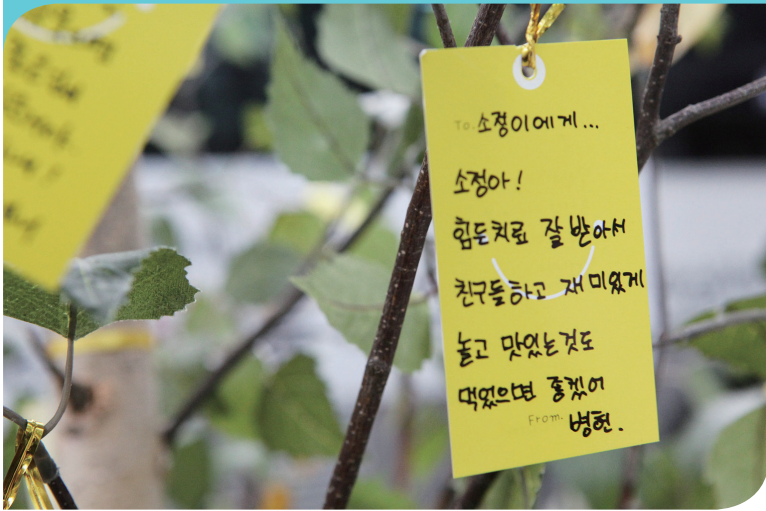 To. 소정이에게...
소정아!
힘든치료 잘 받아서
친구들하고 재미있게
놀고 맛있는것도
먹었으면 좋겠어
From. 병헌.